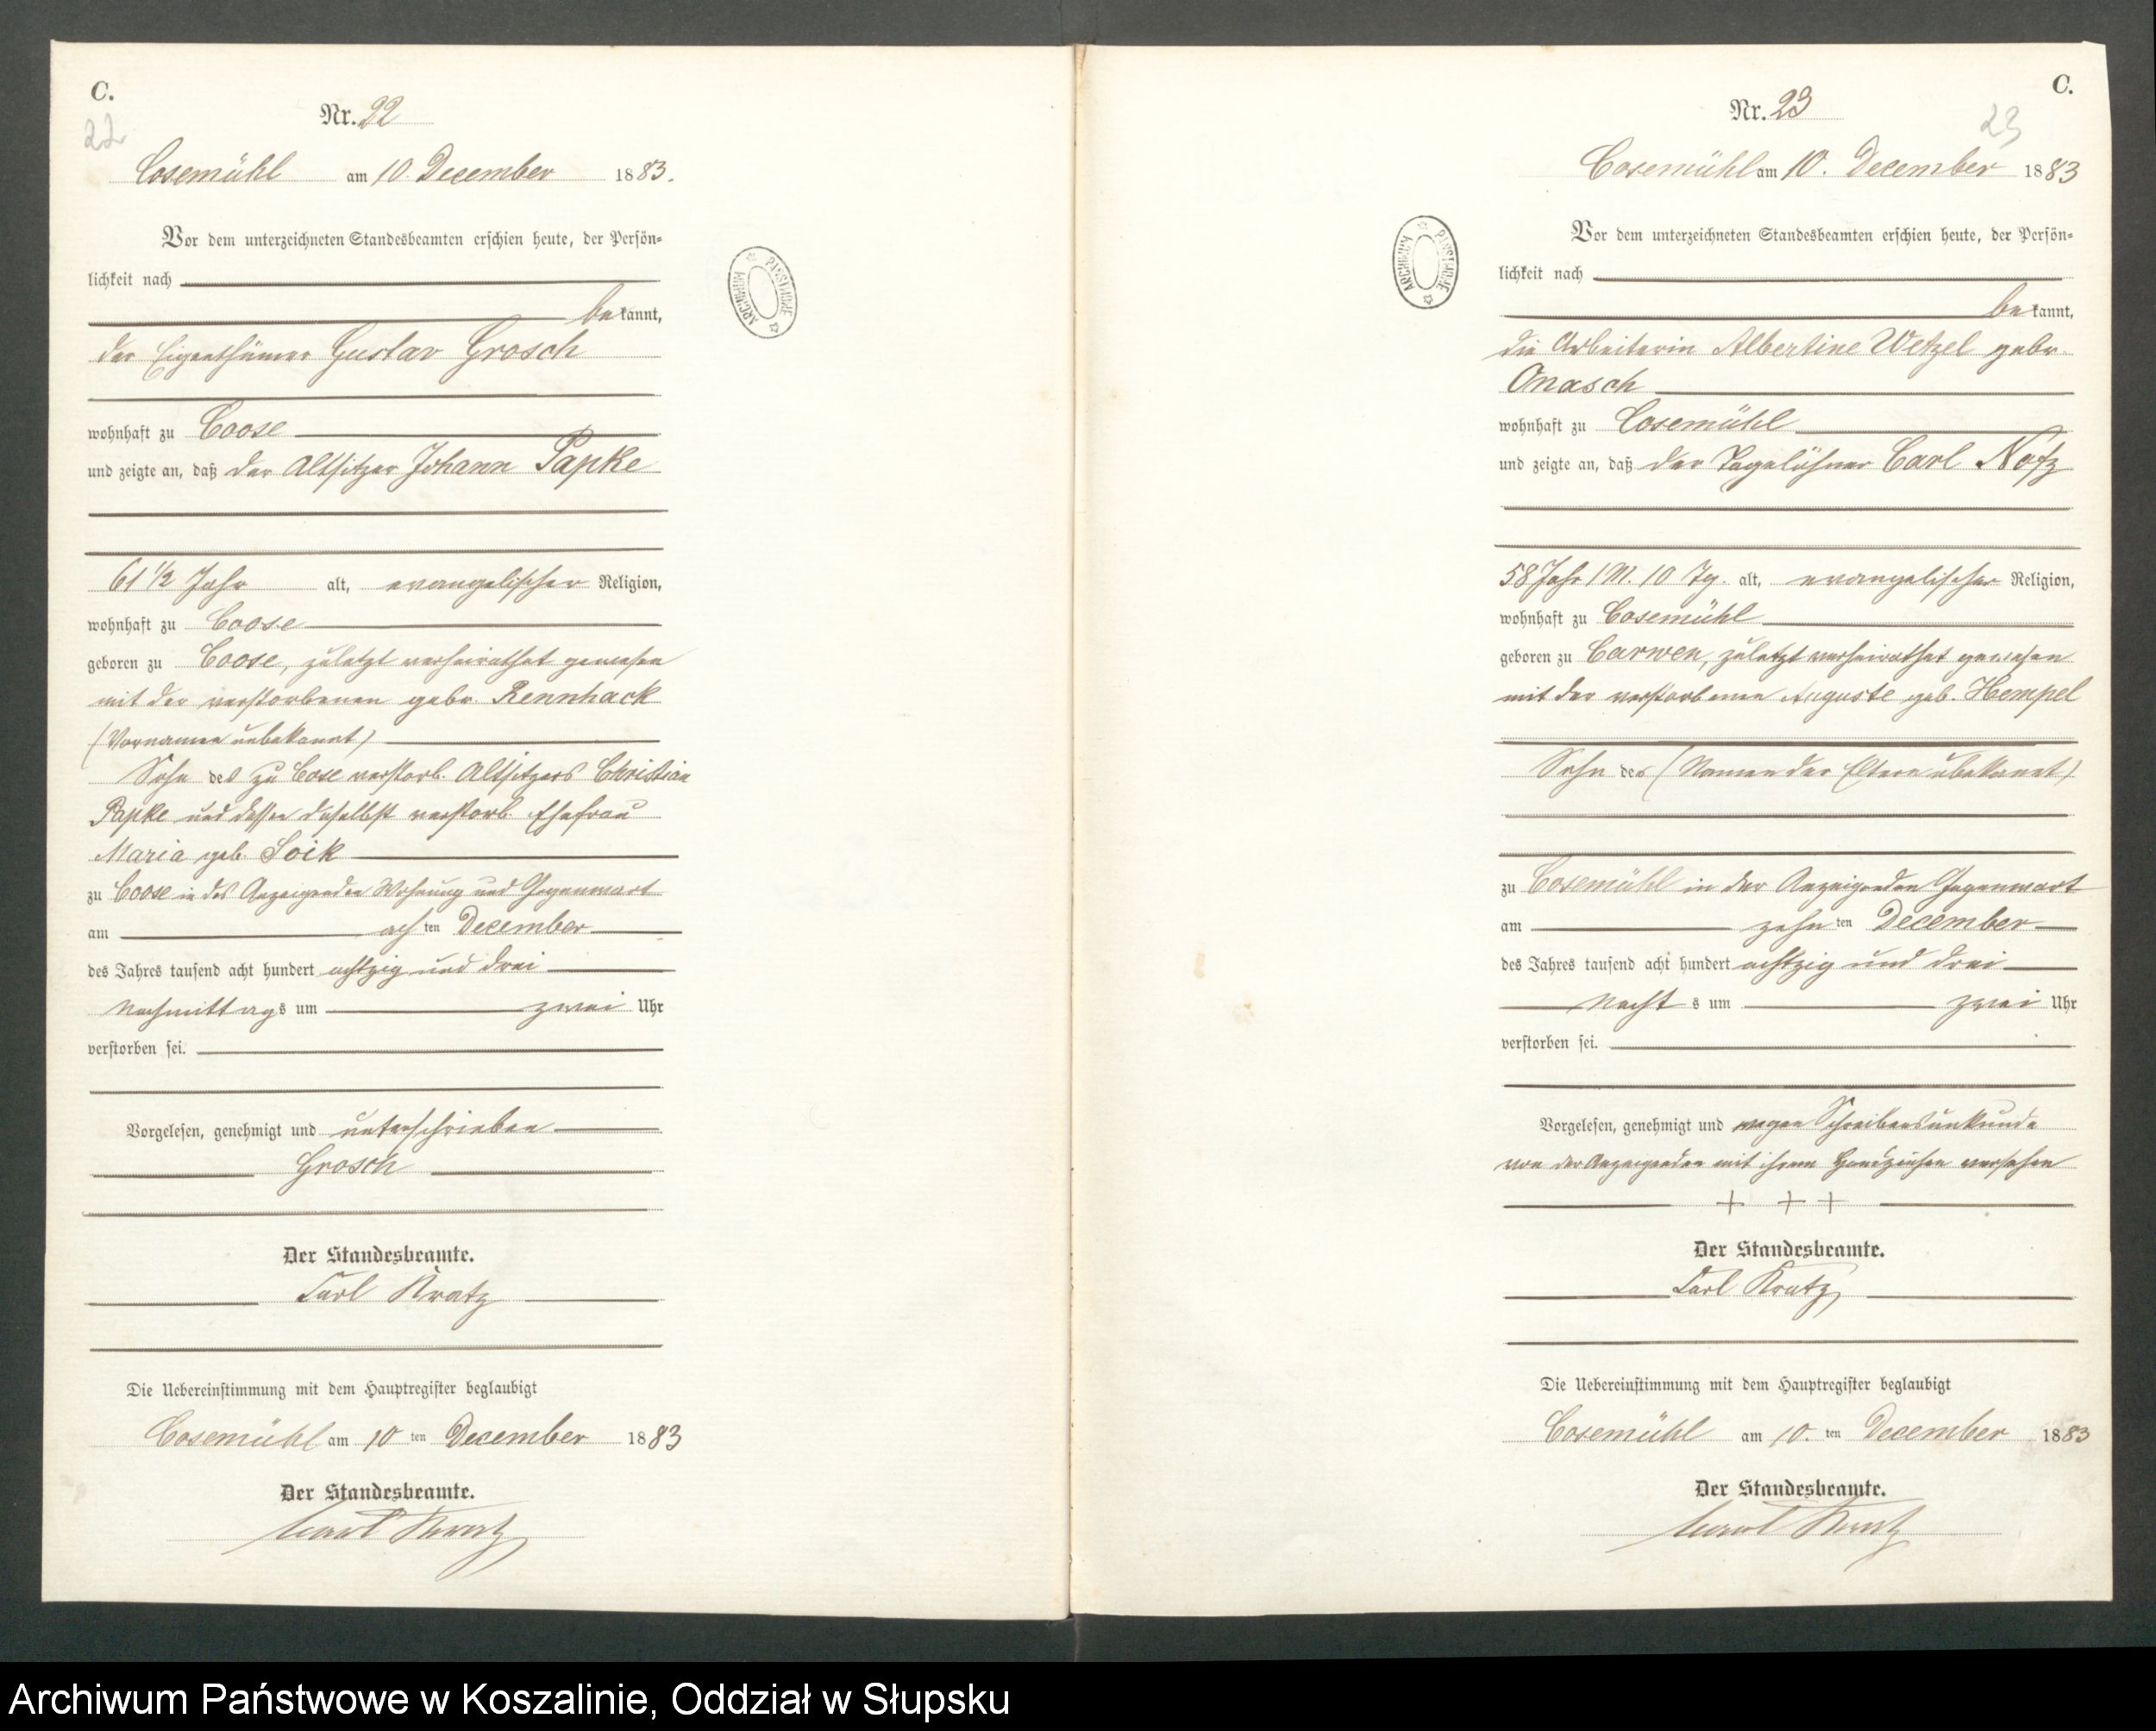 C.
22
Nr. 22
Cosemühl am 10. December 1883.
Vor dem unterzeichneten Standesbeamten erschien heute, der Persön-
lichkeit nach
bekannt,
der Eigenthümer Gustav Grosch
wohnhaft zu Coose
und zeigte an, daß der Altsitzer Johann Papke
61 1/2 Jahr alt, evangelischer Religion,
wohnhaft zu Coose
geboren zu Coose, zuletzt verheirathet gewesen
mit der verstorbenen gebr. Rennhack
(Vornamen unbekannt)
Sohn des zu Cose verstorb. Altsitzers Christian
Papke und dessen daselbst verstorb. Ehefrau
Maria geb. Soik
zu Coose in des Anzeigenden Wohnung und Gegenwart
am achten December
des Jahres tausend acht hundert achtzig und drei
Nachmittags um zwei Uhr
verstorben sei.
Vorgelesen, genehmigt und unterschrieben
Grosch
Der Standesbeamte.
Carl Kratz
Die Uebereinstimmung mit dem Hauptregister beglaubigt
Cosemühl am 10ten December 1883
Der Standesbeamte.
Carl Kratz
ARCHIWUM PAŃSTWOWE
C.
23
Nr. 23
Cosemühl am 10. December 1883
Vor dem unterzeichneten Standesbeamten erschien heute, der Persön-
lichkeit nach
bekannt,
die Arbeiterin Albertine Wetzel gebr.
Onasch
wohnhaft zu Cosemühl
und zeigte an, daß der Tagelöhner Carl Notz
58 Jahr 1 M. 10 Tg. alt, evangelischer Religion,
wohnhaft zu Cosemühl
geboren zu Carwen, zuletzt verheirathet gewesen
mit der verstorbenen Auguste geb. Hempel
Sohn des (Namen der Eltern ubekannt)
zu Cosemühl in der Anzeigenden Gegenwart
am zehnten December
des Jahres tausend acht hundert achtzig und drei
Nachts um zwei Uhr
verstorben sei.
Vorgelesen, genehmigt und wegen Schreibensunkunde
von der Anzeigenden mit ihrem Handzeichen versehen
+ + +
Der Standesbeamte.
Carl Kratz
Die Uebereinstimmung mit dem Hauptregister beglaubigt
Cosemühl am 10. ten December 1883
Der Standesbeamte.
Carl Kratz
ARCHIWUM PAŃSTWOWE
Archiwum Państwowe w Koszalinie, Oddział w Słupsku